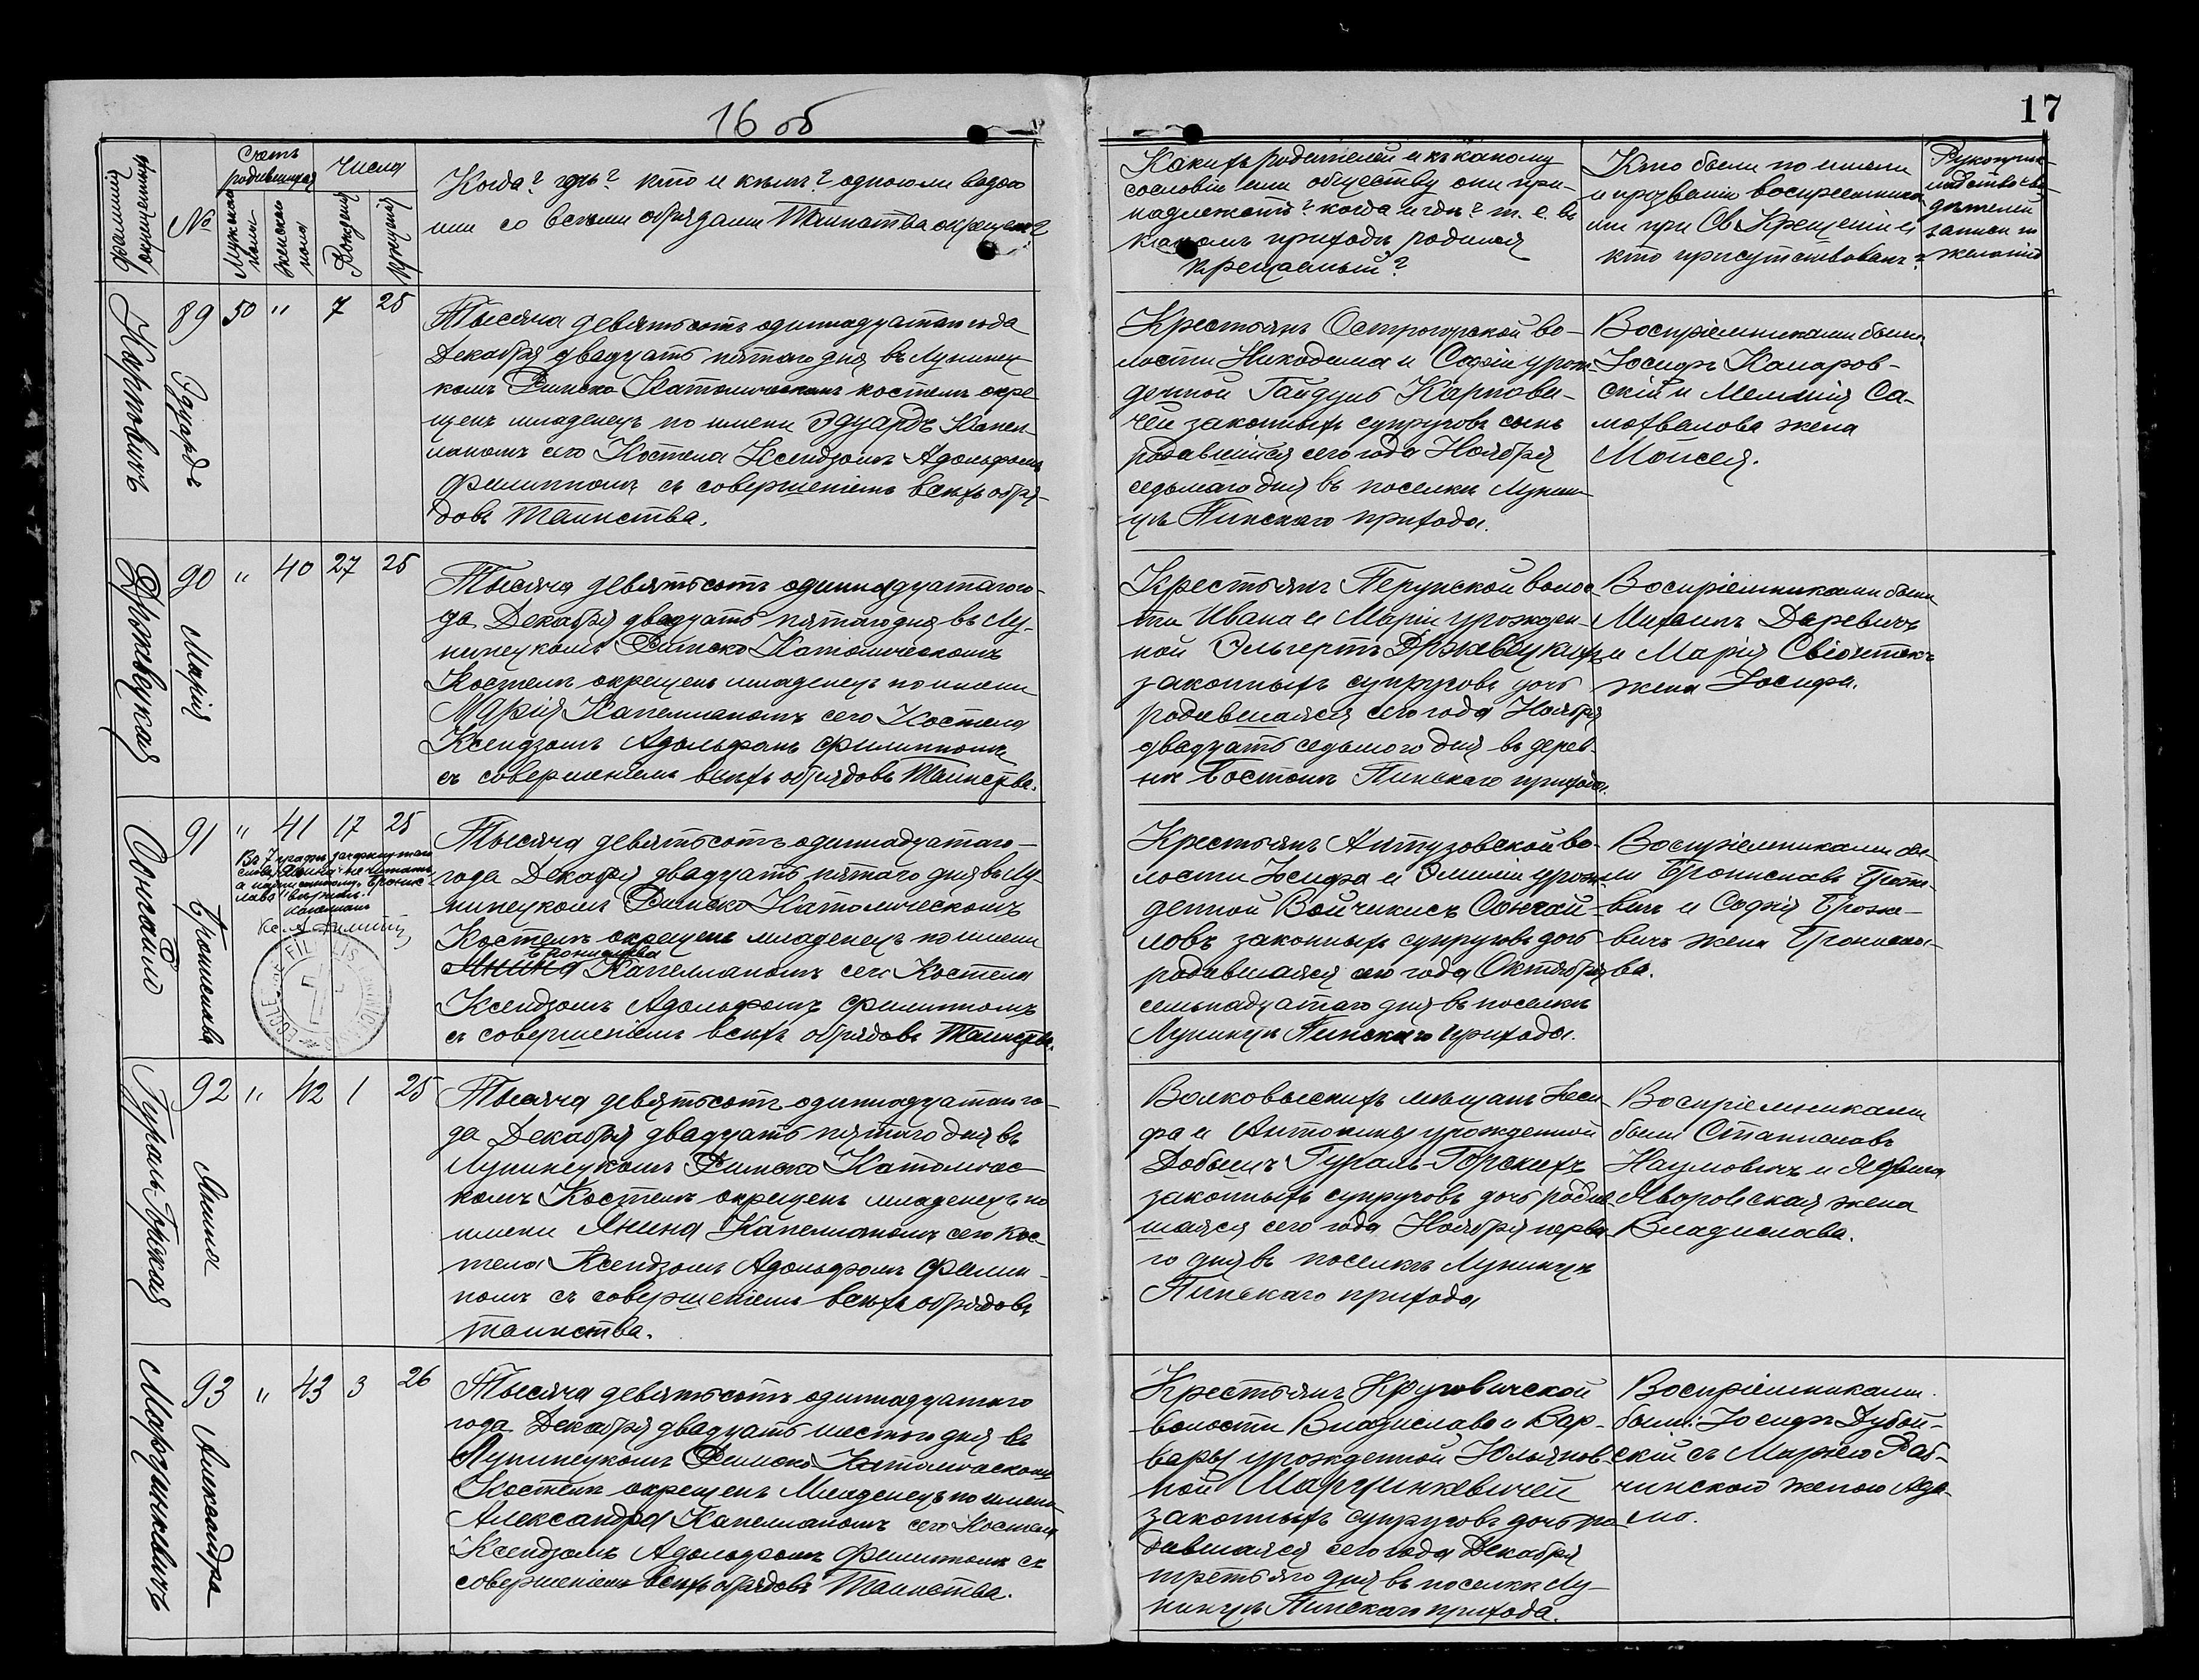 16 об
17
Счетъ
родившихся
Числа
№
Мужскаго
пола
Женскаго
пола
Рожденiя
Крещенiя
Когда? гдѣ? кто и кѣмъ? одною ли водою
или со всѣми обрядами Таинства окрещенъ?
Какихъ родителей и къ какому
сословiю или обществу они при-
надлежатъ? когда и гдѣ? т. е. въ
какомъ приходѣ родился
крещаемый?
Кто были по имени
и прозванiю воспрiемники
при Св. Крещенiи и
кто присутствовалъ?
Рукоприк-
ладство сви-
дѣтелей
записи по
желанiю
Карповичъ
89
Эдуардъ
50 " 7 25
Тысяча девятьсотъ одиннадцатаго года
Декабря двадцать пятаго дня въ Лунинец-
комъ Римско Католическомъ костелѣ окре-
щенъ младенецъ по имени Эдуардъ Капел-
ланомъ сего Костела Ксендзомъ Адольфомъ
Филиппомъ съ совершенiемъ всѣхъ обря-
довъ Таинства.
Крестьянъ Острогурской во-
лости Никодима и Софiи урож-
денной Гайдуль Карпови-
чей законныхъ супруговъ сынъ
родившiйся сего года Ноября
седьмаго дня въ поселкѣ Лунин-
цѣ Пинскаго прихода.
Воспрiемниками были
Iосифъ Комаров-
скiй и Меланiя Са-
мохвалова жена
Моисея.
Држевуцкая
90
Марiя
" 40 27 25
Тысяча девятьсотъ одиннадцатаго го-
да Декабря двадцать пятаго дня въ Лу-
нинецкомъ Римско Католическомъ
Костелѣ окрещенъ младенецъ по имени
Марiя Капелланомъ сего Костела
Ксендзомъ Адольфомъ Филиппомъ
съ совершенiемъ всѣхъ обрядовъ Таинства.
Крестьянъ Перунской волос-
ти Ивана и Марiи урожден-
ной Эльгертъ Држевуцкихъ
законныхъ супруговъ дочь
родившаяся сего года Ноября
двадцать седьмого дня въ дерев-
нѣ Бостынь Пинскаго прихода.
Воспрiемниками были
Михаилъ Даревичъ
и Марiя Свiонтекъ
жена Iосифа.
Сонгайло
91
Бронислава
" 41 17 25
Въ 7 графѣ зачеркнутаго
слова "Янина" не читать,
а написанному "Бронис-
лава" вѣрить.
Капелланъ
Кс. А. Филиппъ
Тысяча девятьсотъ одиннадцатаго
года Декабря двадцать пятаго дня въ Лу-
нинецкомъ Римско Католическомъ
Костелѣ окрещенъ младенецъ по имени
Бронислава
Янина Капелланомъ сего Костела
Ксендзомъ Адольфомъ Филиппомъ
съ совершенiемъ всѣхъ обрядовъ Таинства.
Крестьянъ Антузовской во-
лости Iосифа и Эмилiи урож-
денной Войчикисъ Сонгай-
ловъ законныхъ супруговъ дочь
родившаяся сего года Октября
семьнадцатаго дня въ поселкѣ
Лунинцѣ Пинскаго прихода.
Воспрiемниками бы-
ли Брониславъ
и Софiя
жена Бронисла-
ва.
Гураль-Горская
92
Янина
" 42 1 25
Тысяча девятьсотъ одиннадцатаго го-
да Декабря двадцать пятаго дня въ
Лунинецкомъ Римско Католичес-
комъ Костелѣ окрещенъ младенецъ по
имени Янина Капелланомъ сего Кос-
тела Ксендзомъ Адольфомъ Филип-
помъ съ совершенiемъ всѣхъ обрядовъ
таинства.
Волковыскихъ мѣщанъ Iоси-
фа и Антонины урожденной
Добышъ Гураль-Горскихъ
законныхъ супруговъ дочь родив-
шаяся сего года Ноября перва-
го дня въ поселкѣ Лунинцѣ
Пинскаго прихода
Воспрiемниками
были Станиславъ
Наумовичъ и Ядвига
Яворовская жена
Владислава.
Марцинкевичъ
93
Александра
" 43 3 26
Тысяча девятьсотъ одиннадцатаго
года Декабря двадцать шестого дня въ
Лунинецкомъ Римско Католическомъ
Костелѣ окрещенъ Младенецъ по имени
Александра Капелланомъ сего Костела
Ксендзомъ Адольфомъ Филиппомъ съ
совершенiемъ всѣхъ обрядовъ Таинства.
Крестьянъ Круговичской
волости Владислава и Вар-
вары урожденной Юльянов-
ной Марцинкевичей
законныхъ супруговъ дочь ро-
дившаяся сего года Декабря
третьяго дня въ поселкѣ Лу-
нинцѣ Пинскаго прихода.
Воспрiемниками
были: Iосифъ Дубой-
скiй съ Марiею Раб-
чинской женою Ада-
ма.